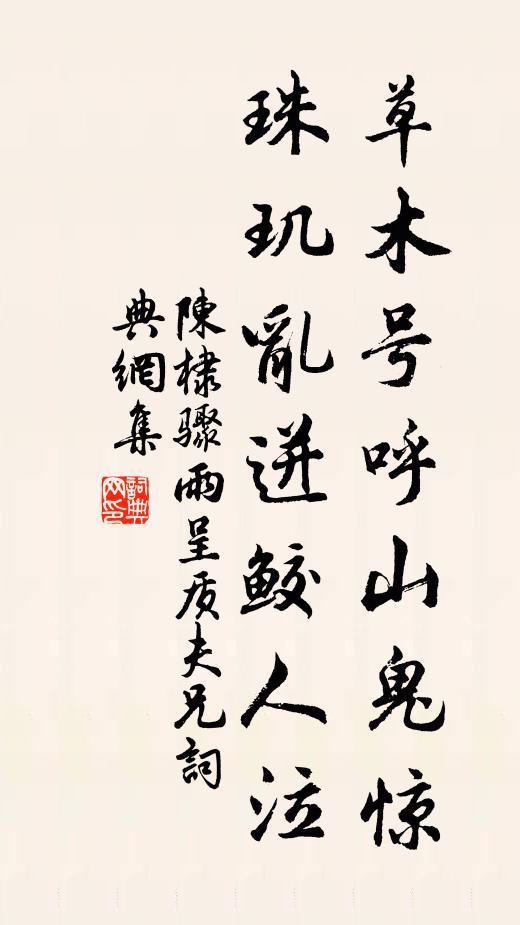 草木号呼山鬼惊
珠玑亂迸鲛人泣
陳棣驟雨呈质夫兄詞
典網集
詞典网印